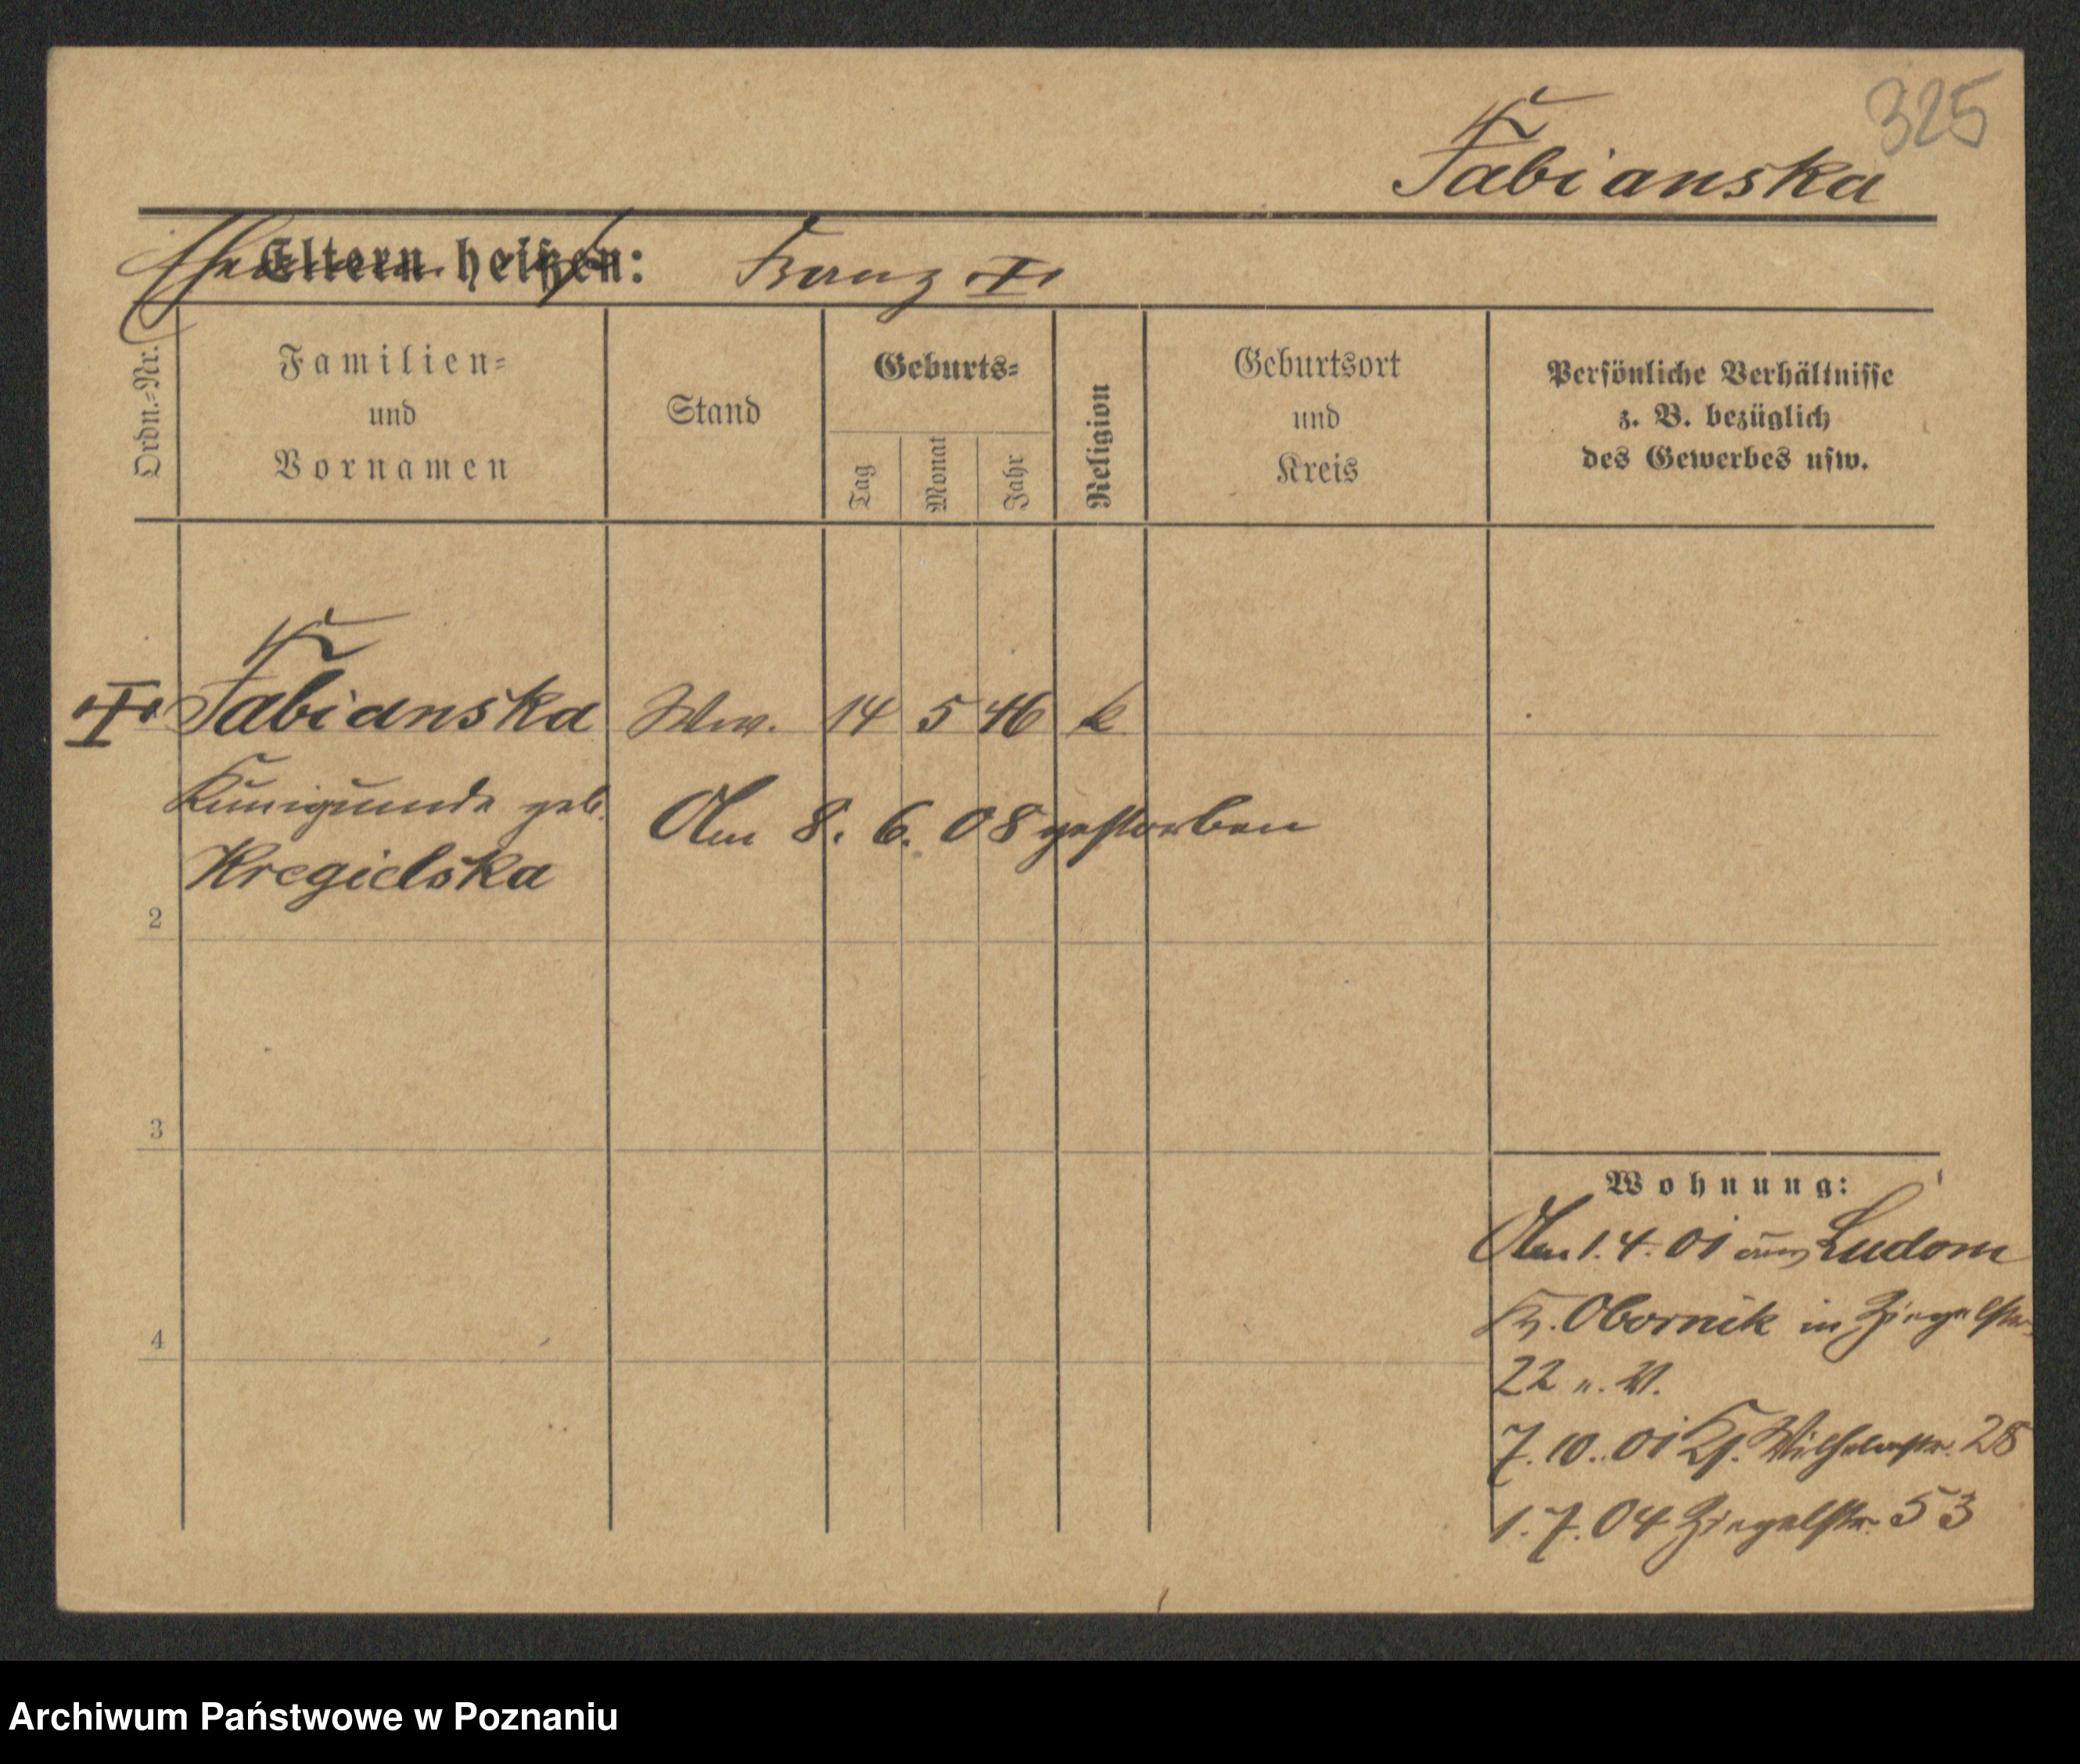 325
Fabianska
Ehemann Eltern heißen: Franz
Ordn.-Nr.
Familien-
und
Vornamen
Stand
Geburts-
Tag
Monat
Jahr
Religion
Geburtsort
und
Kreis
Persönliche Verhältnisse
z. B. bezüglich
des Gewerbes usw.
Fabianska Ww. 14 5 46 k
Kunigunde geb.
Kregielska
Am 8. 6. 08 gestorben
2
3
4
Wohnung:
Am 1. 4. 01 aus Ludom
Kr. Obornik in Ziegelstr.
22
7. 10. 01 Wilhelmstr. 28
1. 7. 04 Ziegelstr. 53
Archiwum Państwowe w Poznaniu